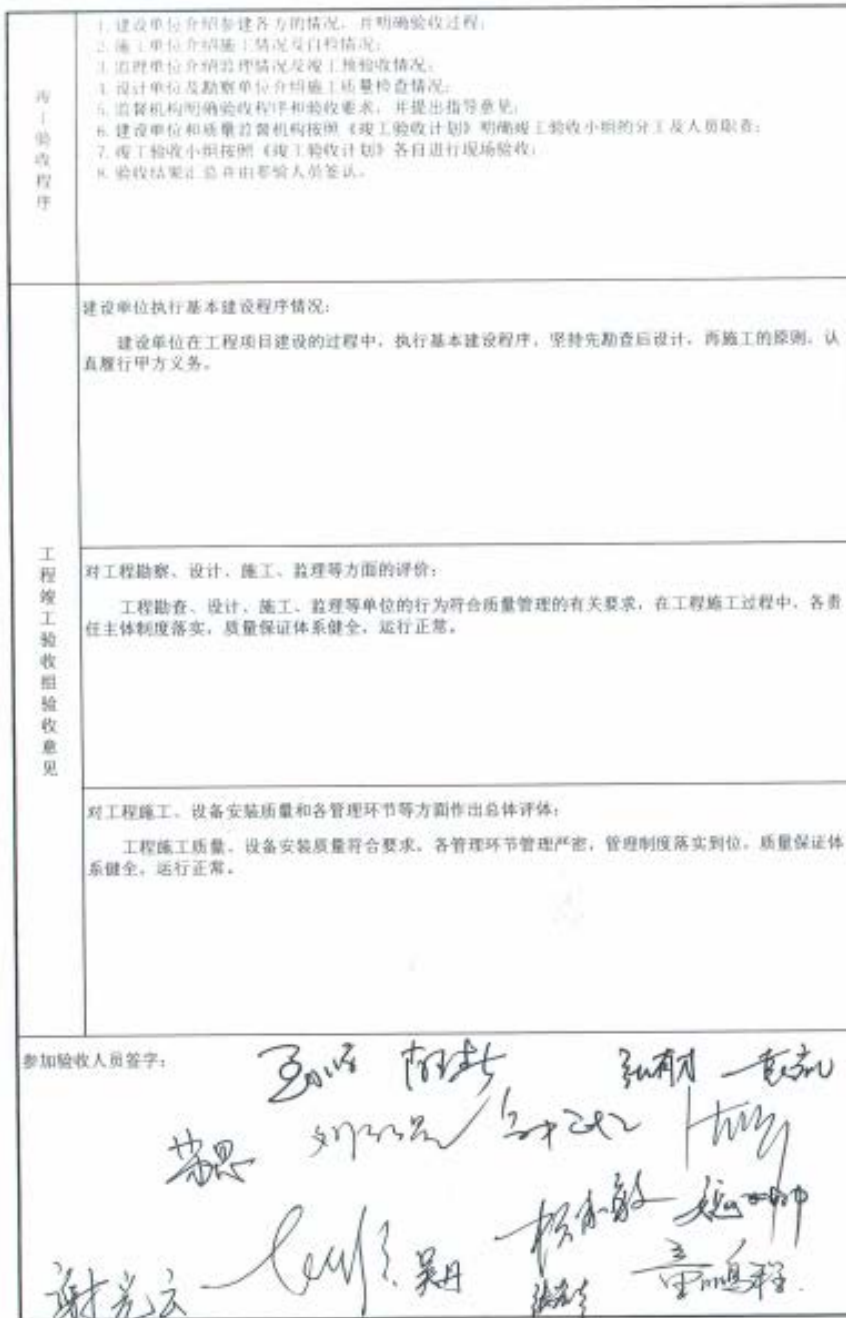 竣工验收程序
1. 建设单位介绍参建各方的情况，并明确验收过程；
2. 施工单位介绍施工情况及自检情况；
3. 监理单位介绍监理情况及竣工预验收情况；
4. 设计单位及勘察单位介绍施工质量检查情况；
5. 监督机构明确验收程序和验收要求，并提出指导意见；
6. 建设单位和质量监督机构按照《竣工验收计划》明确竣工验收小组的分工及人员职责；
7. 竣工验收小组按照《竣工验收计划》各自进行现场验收；
8. 验收结果汇总并由参验人员签认。
工程竣工验收组验收意见
建设单位执行基本建设程序情况：
建设单位在工程项目建设的过程中，执行基本建设程序，坚持先勘查后设计，再施工的原则，认
真履行甲方义务。
对工程勘察、设计、施工、监理等方面的评价：
工程勘查、设计、施工、监理等单位的行为符合质量管理的有关要求，在工程施工过程中，各责
任主体制度落实，质量保证体系健全，运行正常。
对工程施工、设备安装质量和各管理环节等方面作出总体评体：
工程施工质量、设备安装质量符合要求，各管理环节管理严密，管理制度落实到位，质量保证体
系健全，运行正常。
参加验收人员签字：
谢光云 吴丹 童鹏程